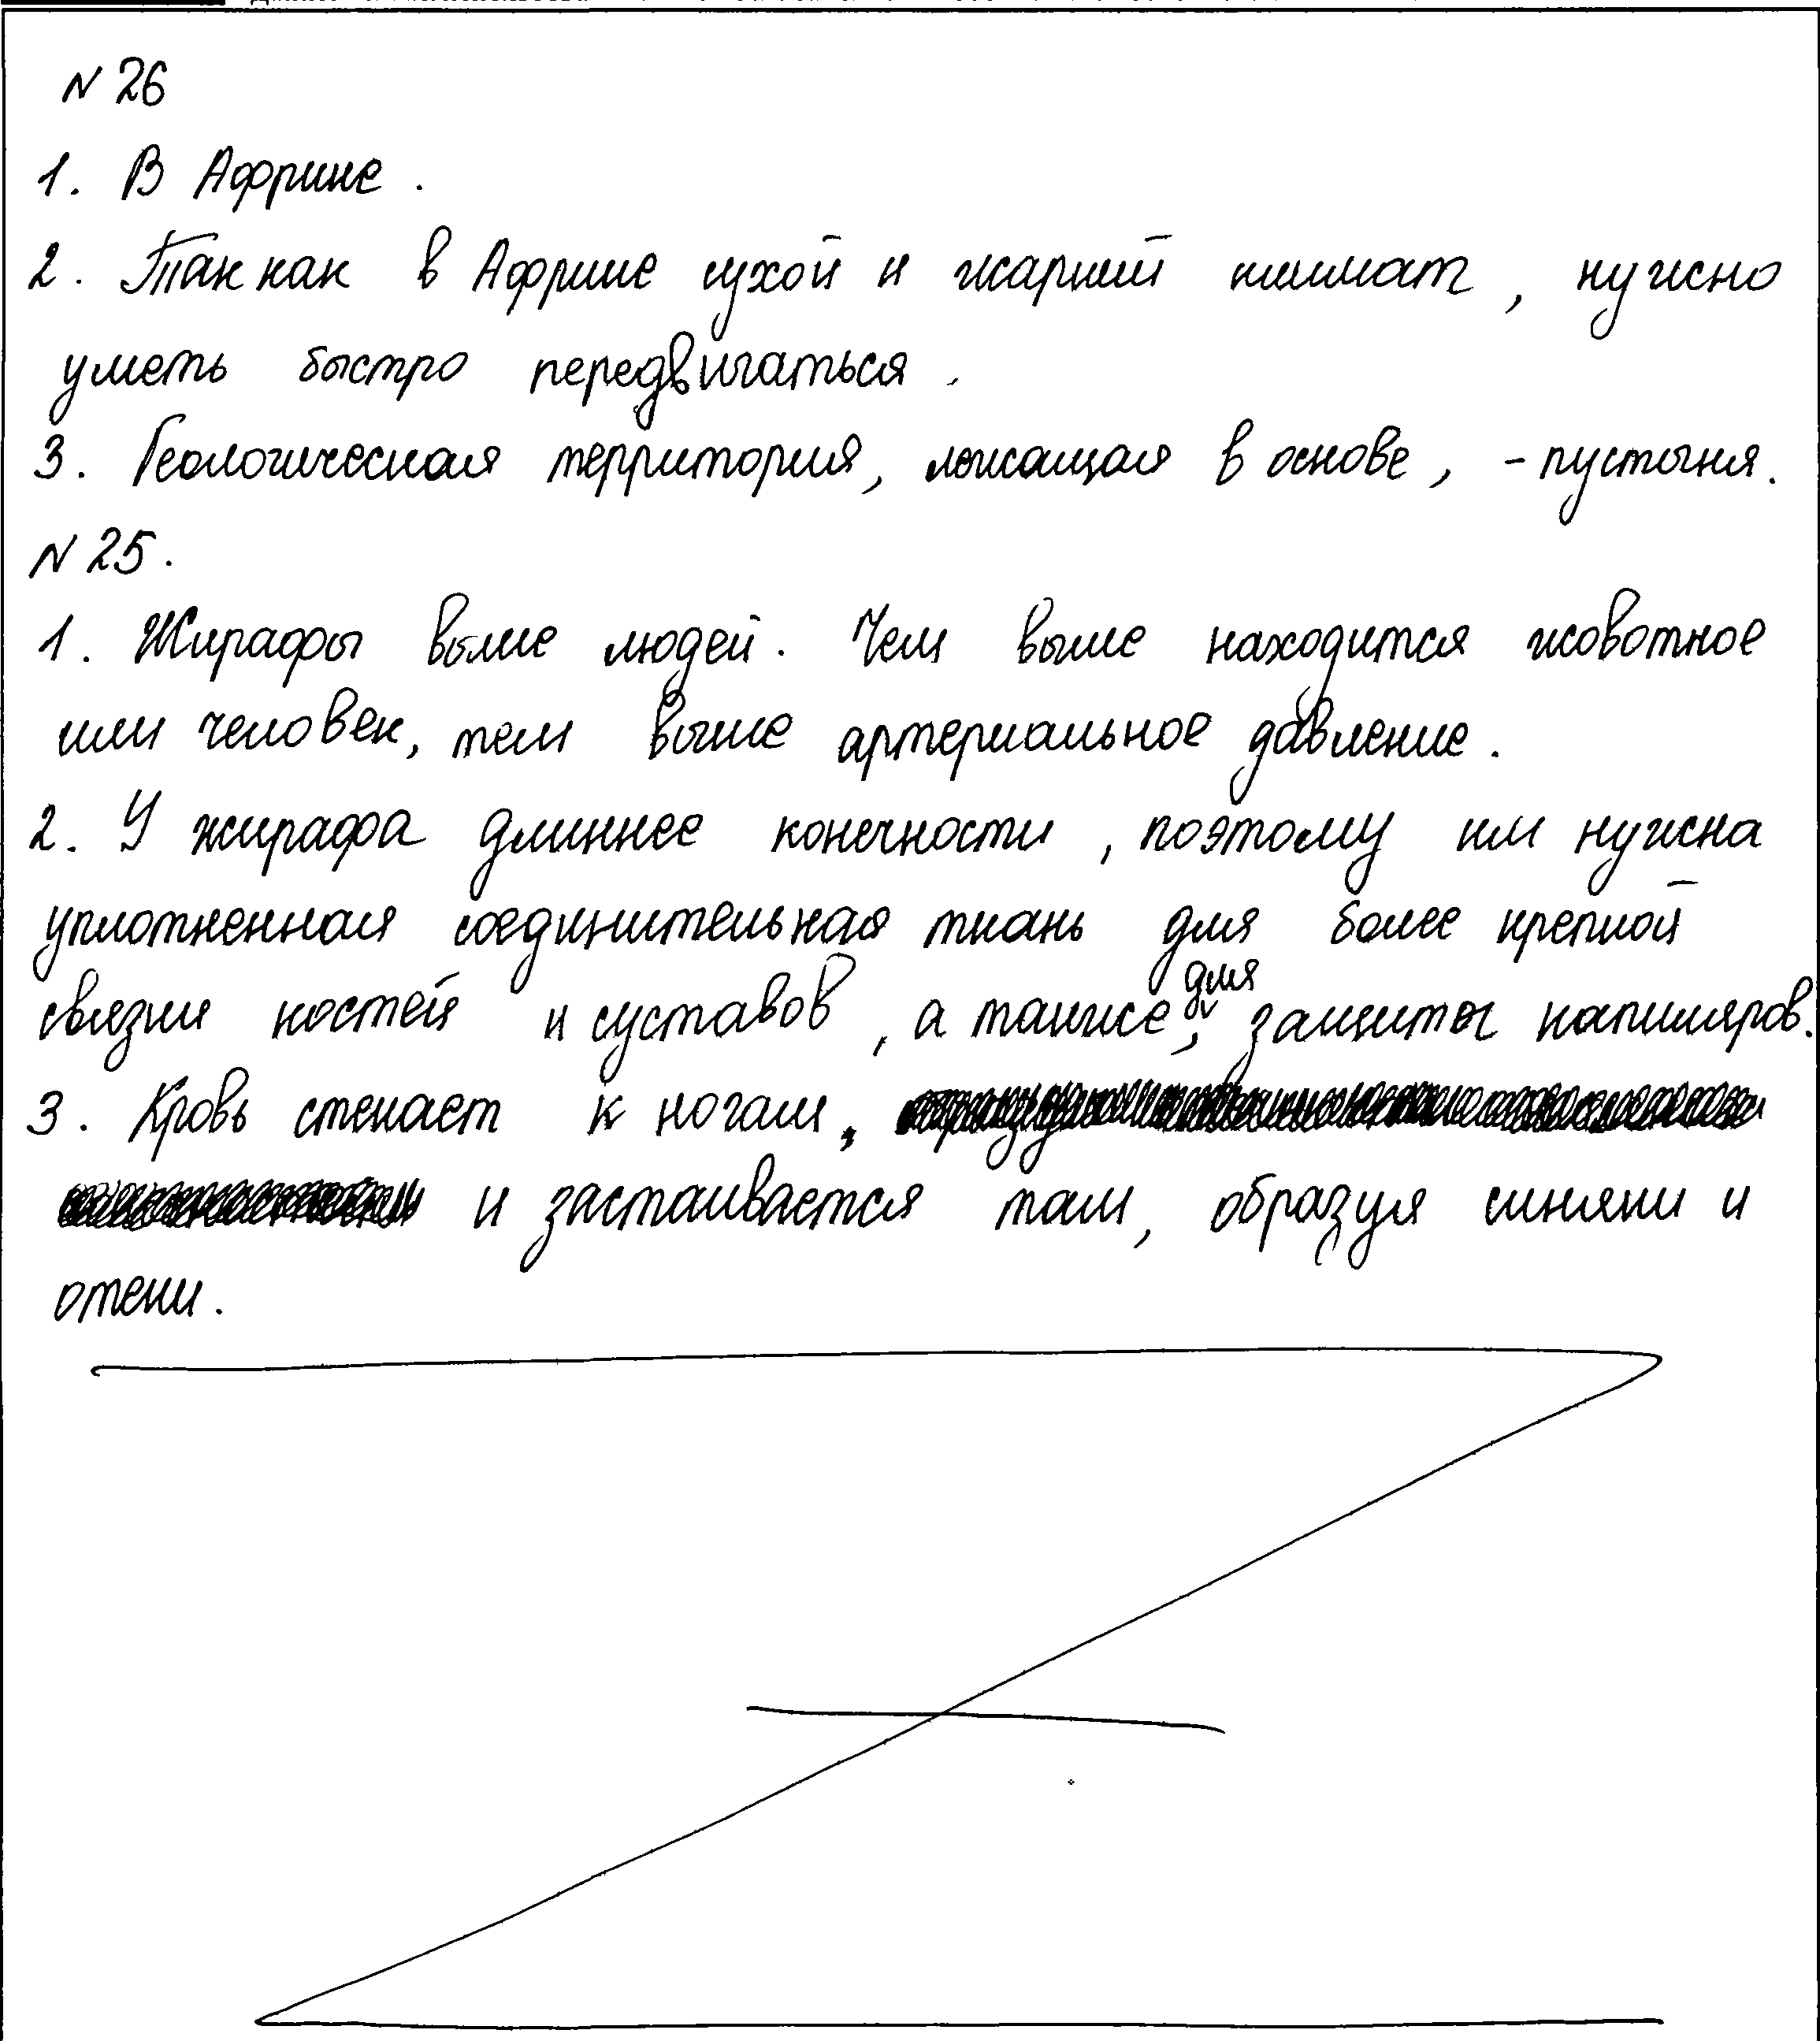 N 26
1. В Африке.
2. Так как в Африке сухой и жаркий климат, нужно
уметь быстро передвигаться.
3. Геологическая территория, лежащая в основе, - пустыня.
N 25.
1. Жирафы выше людей. Чем выше находится жовотное
или человек, тем выше артериальное давление.
2. У жирафа длиннее конечности, поэтому им нужна
уплотненная соединительная ткань для более крепкой
связки костей и суставов, а также, для защиты капилляров.
3. Кровь стекает к ногам,
и застаивается там, образуя синяки и
отеки.